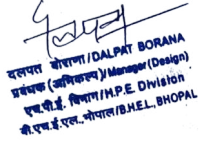 दलपत बोराणा/DALPAT BORANA
प्रबंधक (अभिकल्प)/Manager(Design)
एच.पी.ई. विभाग/H.P.E. Division
बी.एच.ई.एल., भोपाल/B.H.E.L., BHOPAL